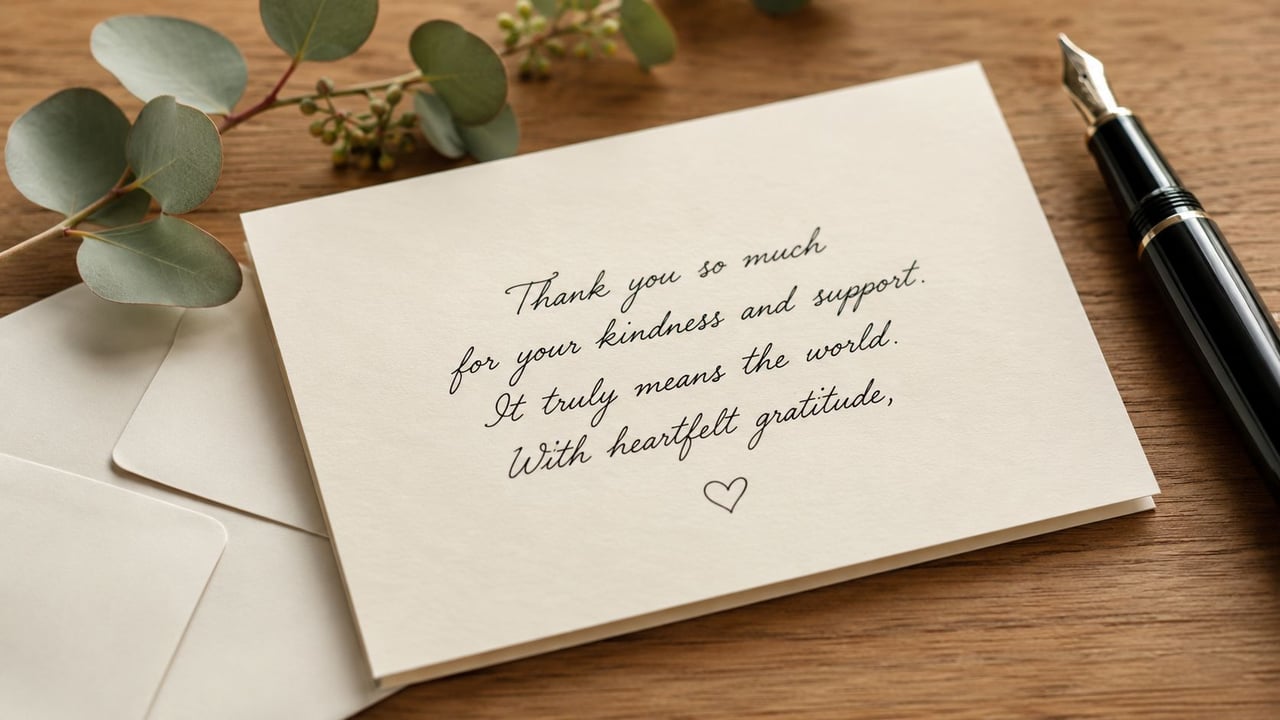 Thank you so much
for your kindness and support.
It truly means the world.
With heartfelt gratitude,